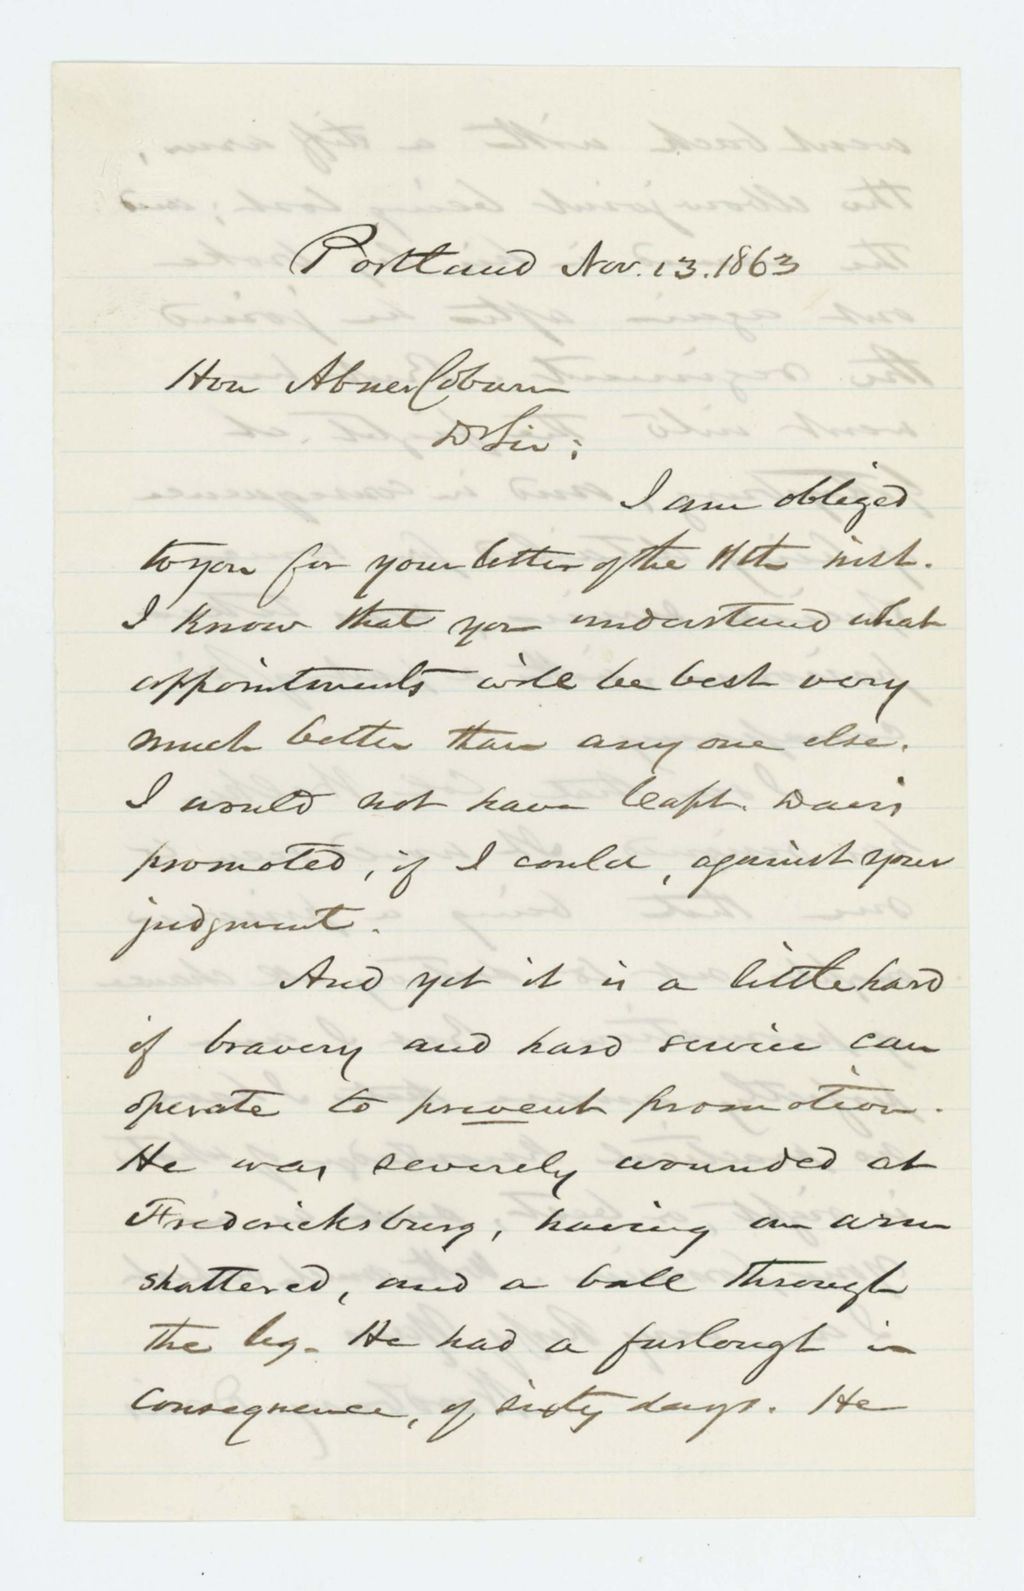 Portland Nov. 13. 1863
Hon Abner Coburn
D Sir;
I am obliged
to you for your letter of the 11th inst.
I know that you understand what
appointments will be best very
much better than any one else.
I would not have Capt. Davis
promoted, if I could, against your
judgment.
And yet it is a little hard
if bravery and hard service can
operate to prevent promotion.
He was severely wounded at
Fredericksburg, having an arm
shattered, and a ball through
the leg. He had a furlough in
consequence, of sixty days. He